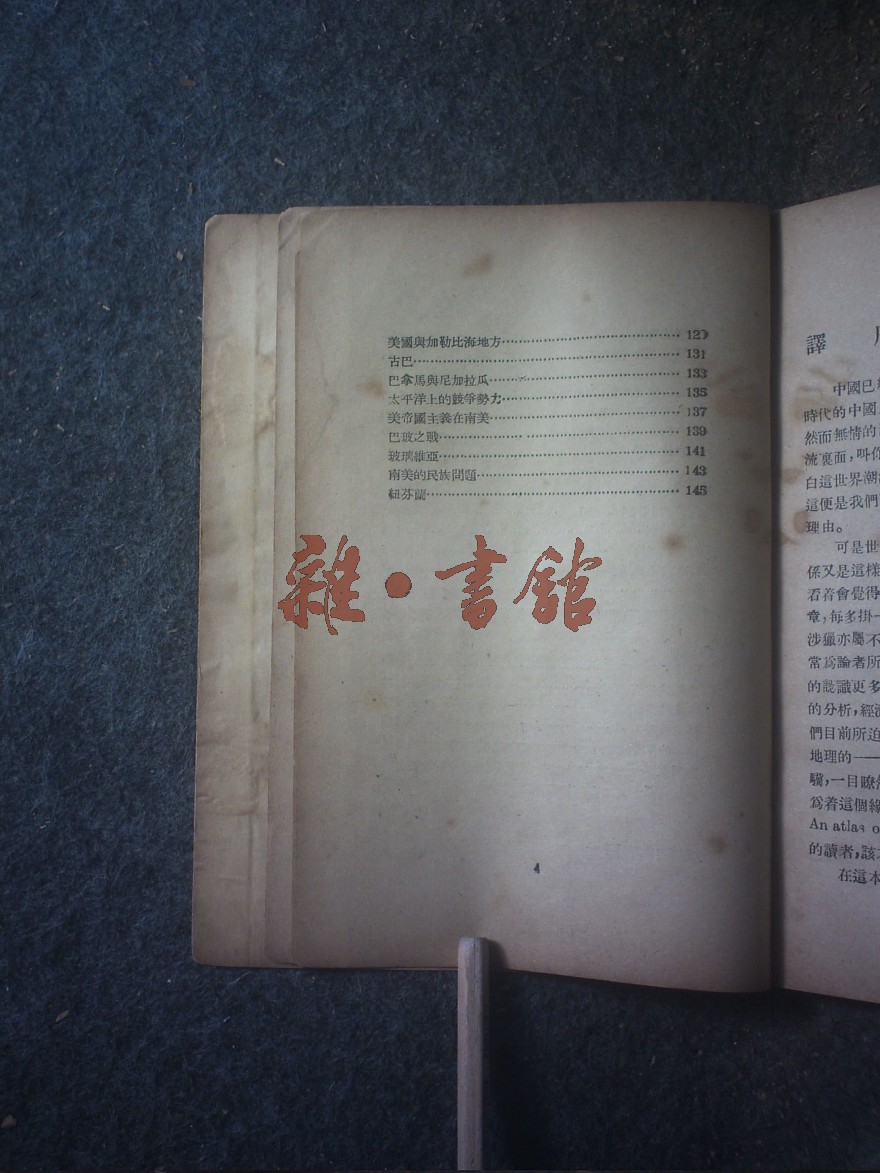 美國與加勒比海地方 129
古巴 131
巴拿馬與尼加拉瓜 133
太平洋上的競爭勢力 135
美帝國主義在南美 137
巴玻之戰 139
玻璃維亞 141
南美的民族問題 143
紐芬蘭 145
雜·書館
4
譯
中國已
時代的中國
然而無情的
流裏面,叫你
白這世界潮
這便是我們
理由。
可是世
係又是這樣
看着會覺得
章,每多掛一
涉獵亦屬不
常爲論者所
的認識更多
的分析,經濟
們目前所迫
地理的——
驥,一目瞭然
爲着這個緣
An atlas o
的讀者,該
在這本